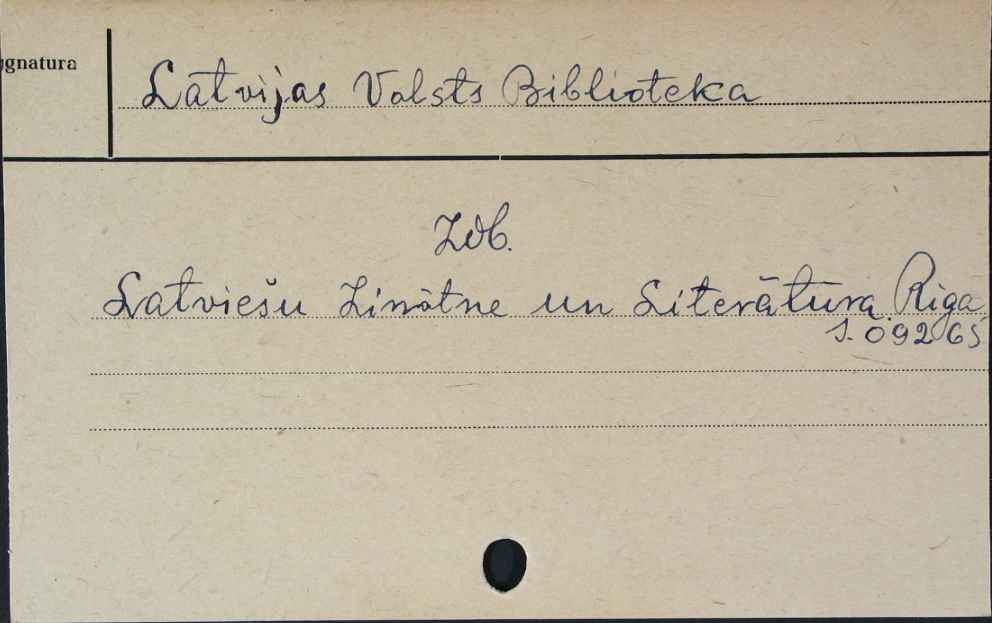 gnatura
Latvijas Valsts Biblioteka
Zob.
Latviešu Zinātne un Literātūra. Rīga,
S. 09265